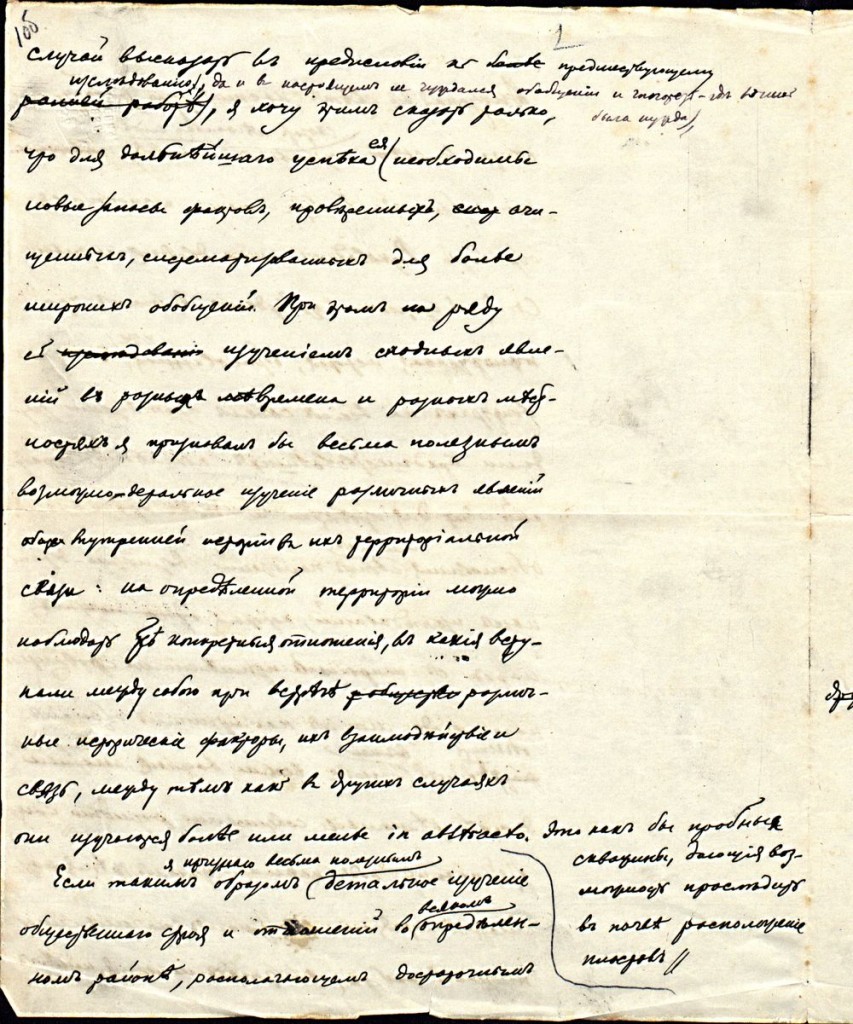 106.
1
случай высказать въ предисловіи къ более предшествующему
изслѣдованію, да и въ настоящемъ не чуждался обобщеній и гипотез-, гдѣ въ нихъ
была нужда),
ранней работѣ), я хочу этимъ сказать только,
что для дальнѣйшаго успѣха ея (необходимы
новые запасы фактовъ, провѣренныхъ, очи-
щенныхъ, систематизированныхъ для болѣе
широкихъ обобщеній. При этомъ на ряду
съ изученіемъ сходныхъ явле-
ній въ разныя времена и разныхъ мѣст-
ностяхъ я признавалъ бы весьма полезнымъ
возможно детальное изученіе различныхъ явленій
внутренней исторіи въ ихъ территоріальной
связи: на опредѣленной территоріи можно
наблюдать тѣ конкретныя отношенія, въ какія всту-
пали между собою при встрѣчѣ различ-
ные историческіе факторы, ихъ взаимодѣйствіе и
связь, между тѣмъ какъ въ другихъ случаяхъ
они изучаются болѣе или менѣе in abstracto. Это какъ бы пробныя
скважины, дающія воз-
можность прослѣдить
въ почвѣ расположеніе
пластовъ //
я признаю весьма полезнымъ
Если такимъ образомъ (детальное изученіе
всякомъ
общественнаго строя и отношеній во (опредѣлен-
номъ районѣ, располагающемъ достаточнымъ